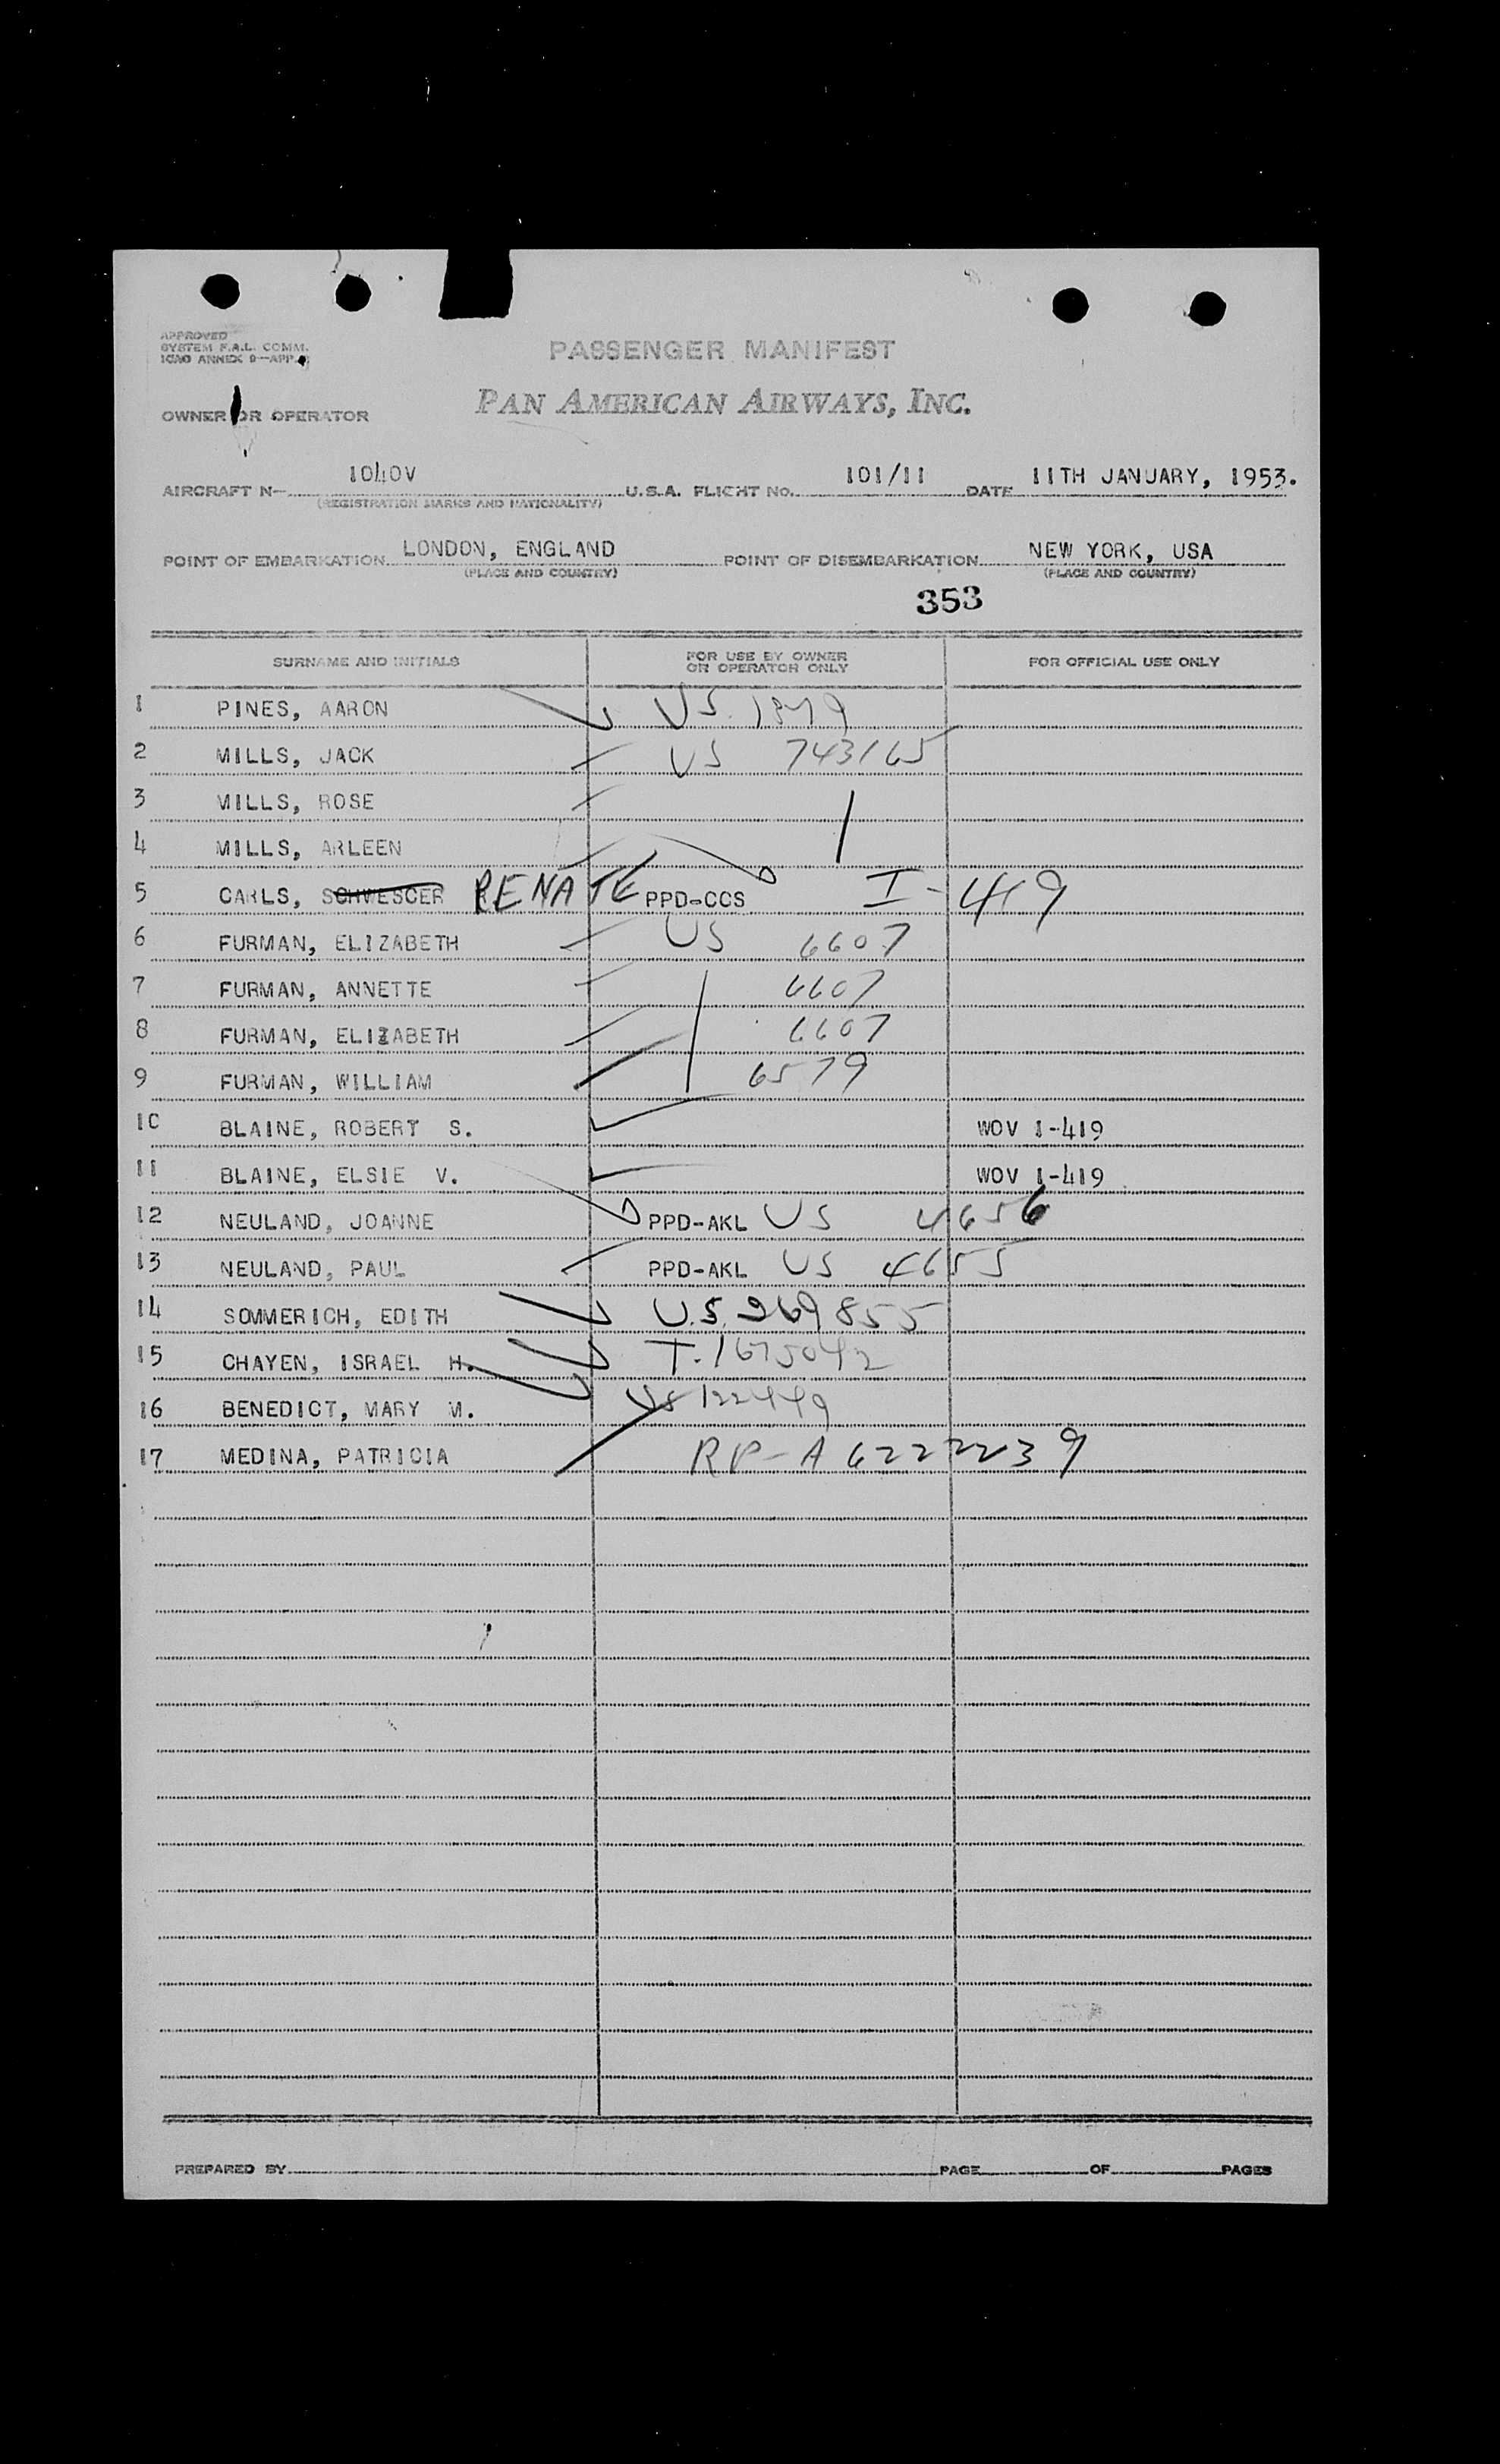 APPROVED
SYSTEM F.A.L. COMM.
ICAO ANNEX 9—APP.
PASSENGER MANIFEST
OWNER OR OPERATOR PAN AMERICAN AIRWAYS, INC.
AIRCRAFT N— 1040V U.S.A. FLIGHT NO. 101/11 DATE 11TH JANUARY, 1953.
(REGISTRATION MARKS AND NATIONALITY)
POINT OF EMBARKATION LONDON, ENGLAND POINT OF DISEMBARKATION NEW YORK, USA
(PLACE AND COUNTRY) (PLACE AND COUNTRY)
353
SURNAME AND INITIALS FOR USE BY OWNER OR OPERATOR ONLY FOR OFFICIAL USE ONLY
1 PINES, AARON US. 1879
2 MILLS, JACK US 743165
3 MILLS, ROSE
4 MILLS, ARLEEN
5 CARLS, SCHWESCER RENATE PPD-CCS I-419
6 FURMAN, ELIZABETH US 6607
7 FURMAN, ANNETTE 6607
8 FURMAN, ELIZABETH 6607
9 FURMAN, WILLIAM 6579
10 BLAINE, ROBERT S. WOV 1-419
11 BLAINE, ELSIE V. WOV 1-419
12 NEULAND, JOANNE PPD-AKL US 4656
13 NEULAND, PAUL PPD-AKL US 4655
14 SOMMERICH, EDITH U.S. 269855
15 CHAYEN, ISRAEL H. T-1675042
16 BENEDICT, MARY M. US 122449
17 MEDINA, PATRICIA RP-A6222239
PREPARED BY PAGE OF PAGES